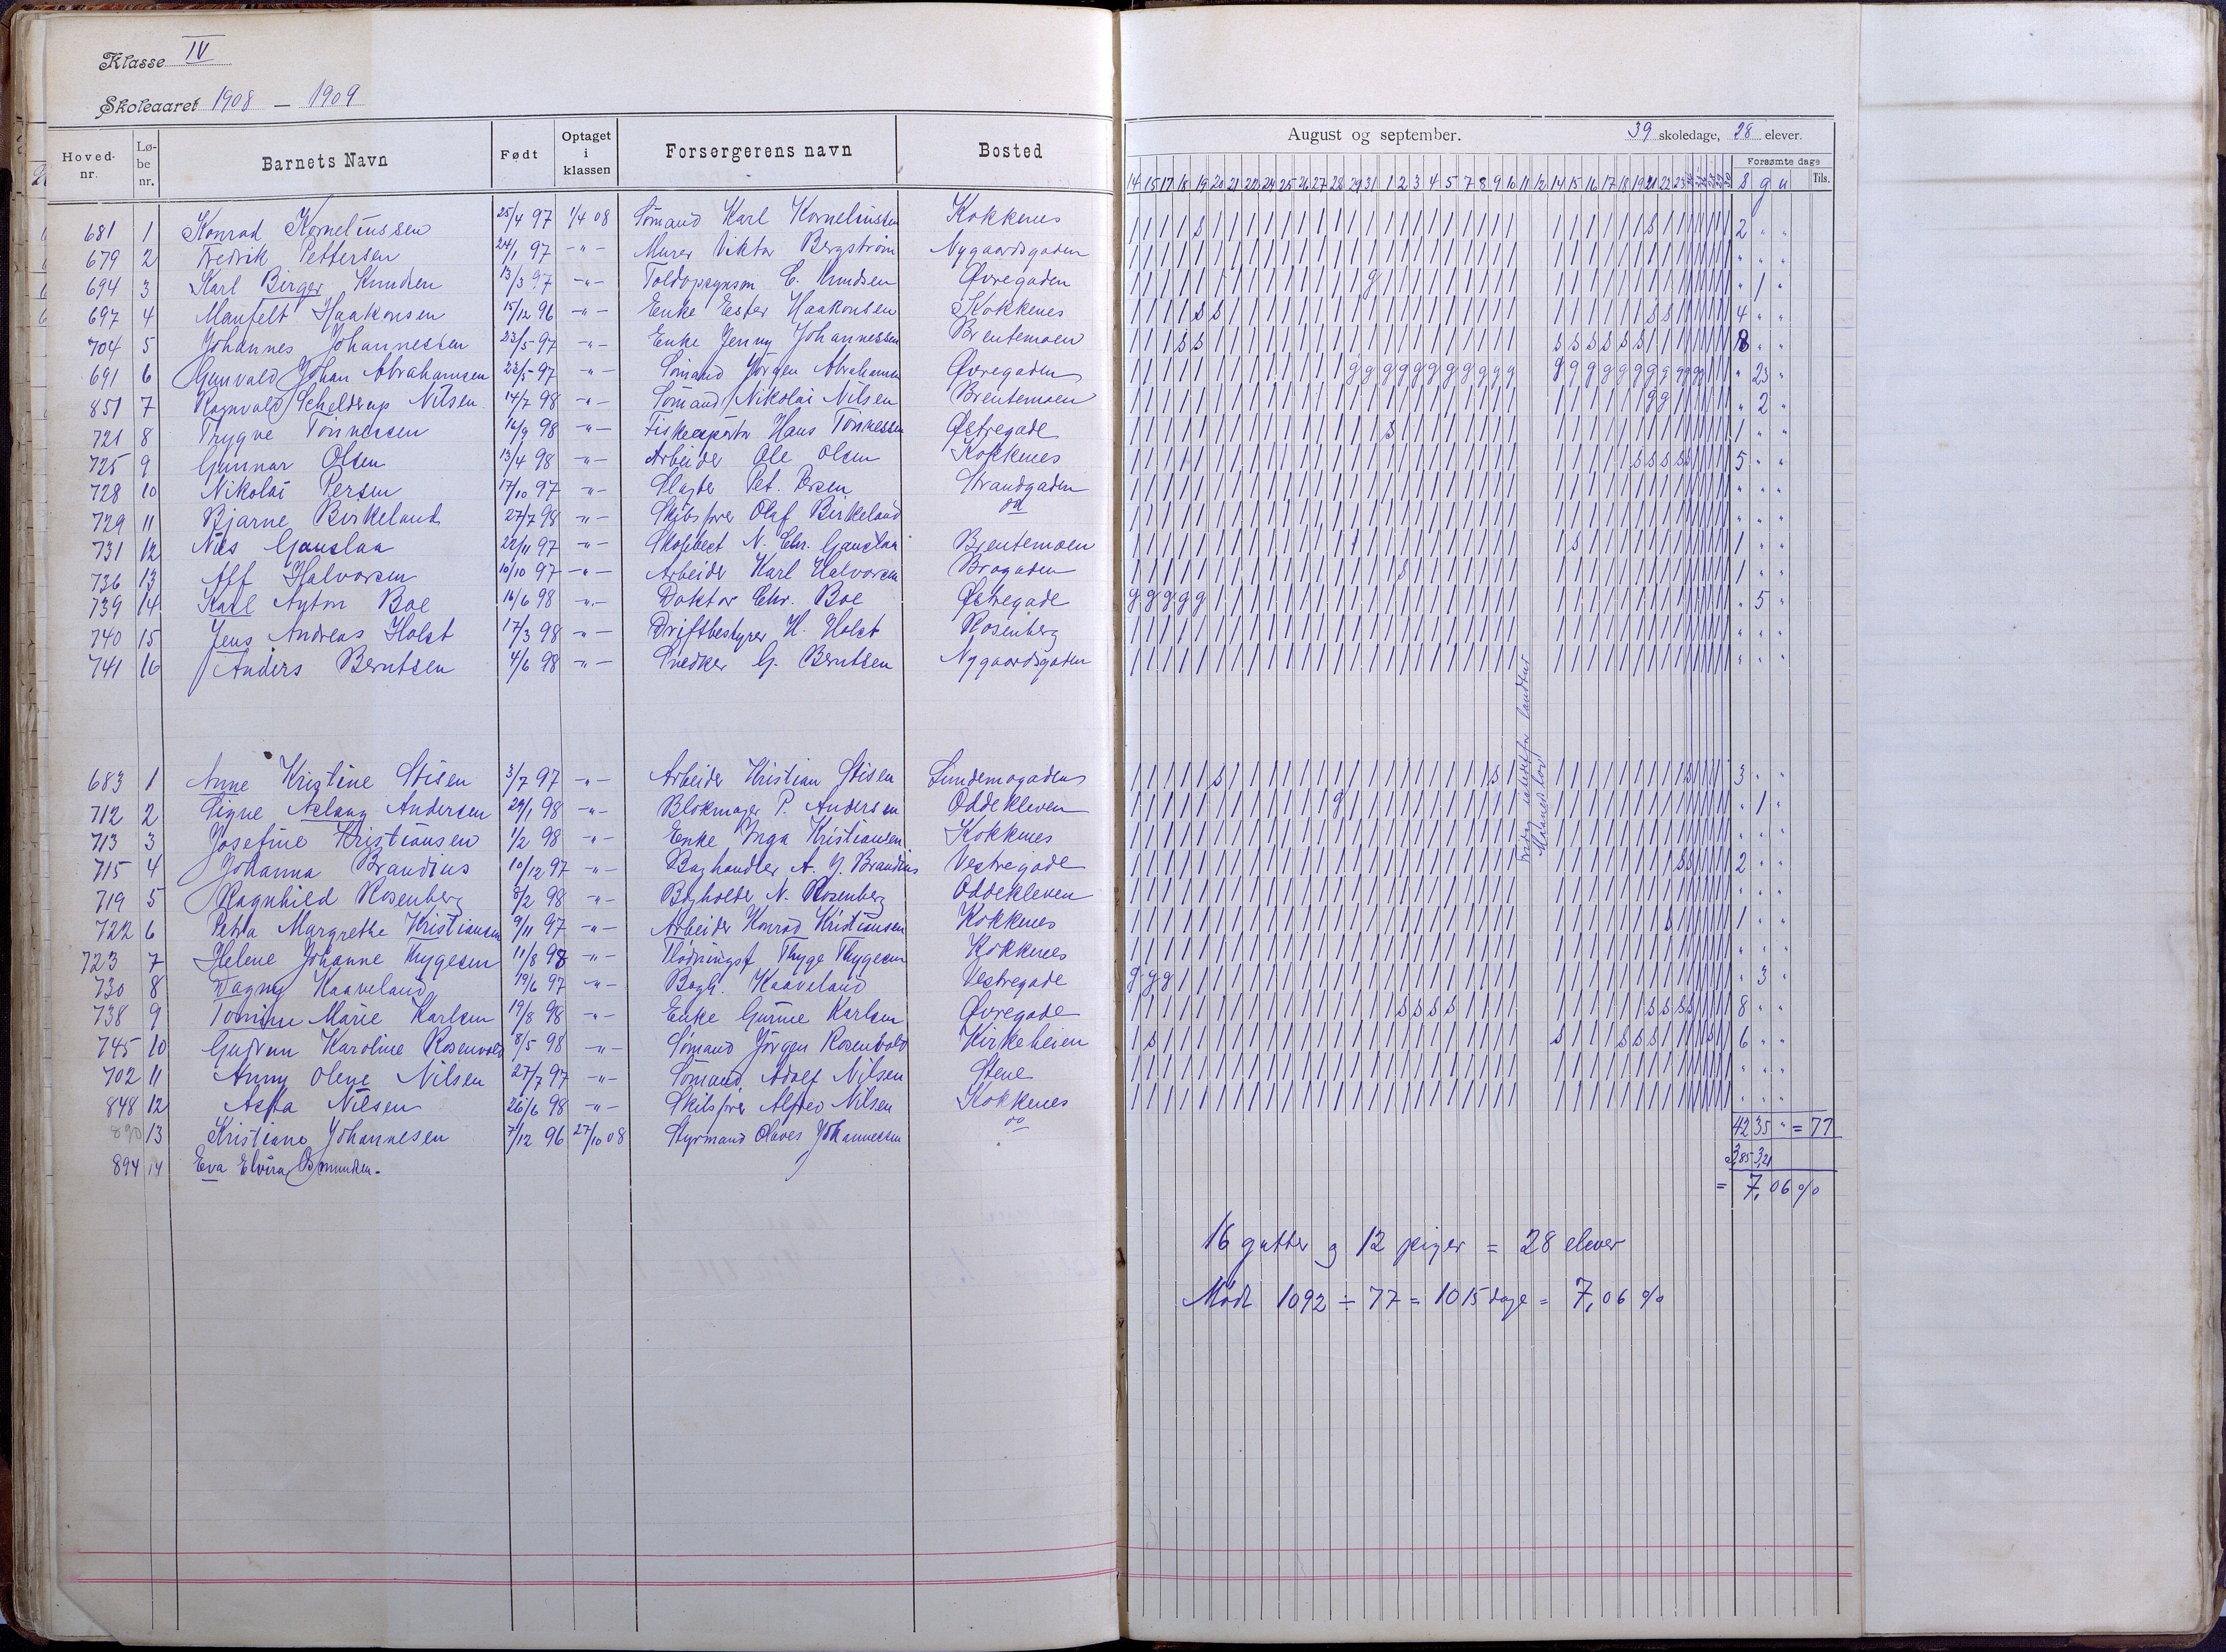 Klasse IV
Skoleaaret 1908 – 1909
Hoved-nr. Løbe nr. Barnets Navn Født Optaget i klassen Forsørgerens navn Bosted
681 1 Konrad Kornelinssen 25/4 97 1/4 08 Sömand Karl Kornelinssen Kokkenes
679 2 Fredrik Pettersen 24/1 97 -"- Murer Viktor Bergström Nygaardsgaden
694 3 Karl Birger Knudsen 13/3 97 -"- C. Knudsen Øvregaden
697 4 Manfelt Haakonsen 15/12 96 -"- Enke Ester Haakonsen Kokkenes
704 5 Johannes Johannessen 23/5 97 -"- Enke Jenny Johannessen Brentemoen
691 6 Gunvald Johan Abrahamsen 23/5 97 -"- Sömand Jörgen Abrahamsen Øvregaden
851 7 Ragnvald Scheldrup Nilsen 14/7 98 -"- Sömand Nikolai Nilsen Brentemoen
721 8 Trygve Tönnessen 16/9 98 -"- Fiskeexportør Hans Tönnessen Østregade
725 9 Gunnar Olsen 13/4 98 -"- Arbeider Ole Olsen Kokkenes
728 10 Nikolai Persen 17/10 97 -"- Slagter Pet. Persen Strandgaden
729 11 Bjarne Birkeland 27/7 98 -"- Skibsfører Olaf Birkeland do
731 12 Nils Gauslaa 22/11 97 -"- N. Chr. Gauslaa Brentemoen
736 13 Alf Halvorsen 10/10 97 -"- Arbeider Karl Halvorsen Brogaden
739 14 Karl Anton Boe 16/6 98 -"- Doktor Chr. Boe Østregade
740 15 Jens Andreas Holst 17/3 98 -"- Driftbestyrer H. Holst Rosenberg
741 16 Anders Berntsen 4/6 98 -"- Snedker G. Berntsen Nygaardsgaden
683 1 Anne Kristine Stisen 3/7 97 -"- Arbeider Kristian Stisen Lundemogaden
712 2 Signe Aslaug Andersen 29/1 98 -"- Blokmager P. Andersen Oddekleven
713 3 Josefine Kristiansen 1/2 98 -"- Enke Inga Kristiansen Kokkenes
715 4 Johanna Brandius 10/12 97 -"- Boghandler A. J. Brandius Vestregade
719 5 Ragnhild Rosenberg 3/2 98 -"- Bogholder N. Rosenberg Oddekleven
722 6 Petra Margrethe Kristiansen 9/11 97 -"- Arbeider Konrad Kristiansen Kokkenes
723 7 Helene Johanne Thygesen 11/8 98 -"- Thyge Thygesen Kokkenes
730 8 Dagny Kaaveland 19/6 97 -"- Bogh. Kaaveland Vestregade
738 9 Tomine Marie Karlsen 19/8 98 -"- Enke Gurine Karlsen Øvregade
745 10 Gudrun Karoline Rosenvold 8/5 98 -"- Sömand Jörgen Rosenvold Kirkeheien
702 11 Anny Olene Nilsen 27/7 97 -"- Sömand Adolf Nilsen Stene
848 12 Asta Nilsen 26/6 98 -"- Skibsfører Alfred Nilsen Kokkenes
890 13 Kristiane Johannesen 7/12 96 27/10 08 Styrmand Olaves Johannessen do
894 14 Eva Elvira Osmundsen.
August og september. 39 skoledage, 28 elever.
Forsømte dage
14 15 17 18 19 20 21 22 24 25 26 27 28 29 31 1 2 3 4 5 7 8 9 10 11 12 14 15 16 17 18 19 21 22 23 s g u Tils.
2 " "
" " "
" 1 "
4 " "
8 " "
" 23 "
" 2 "
1 " "
5 " "
" " "
" " "
1 " "
1 " "
" 5 "
" " "
" " "
landtur
Maanedslov
3 " "
" 1 "
" " "
2 " "
" " "
1 " "
" " "
" 3 "
8 " "
6 " "
" " "
" " "
42 35 " = 77
3,85 3,21
= 7,06 %
16 gutter og 12 piger = 28 elever
Mödt 1092 ÷ 77 = 1015 dage = 7,06 %